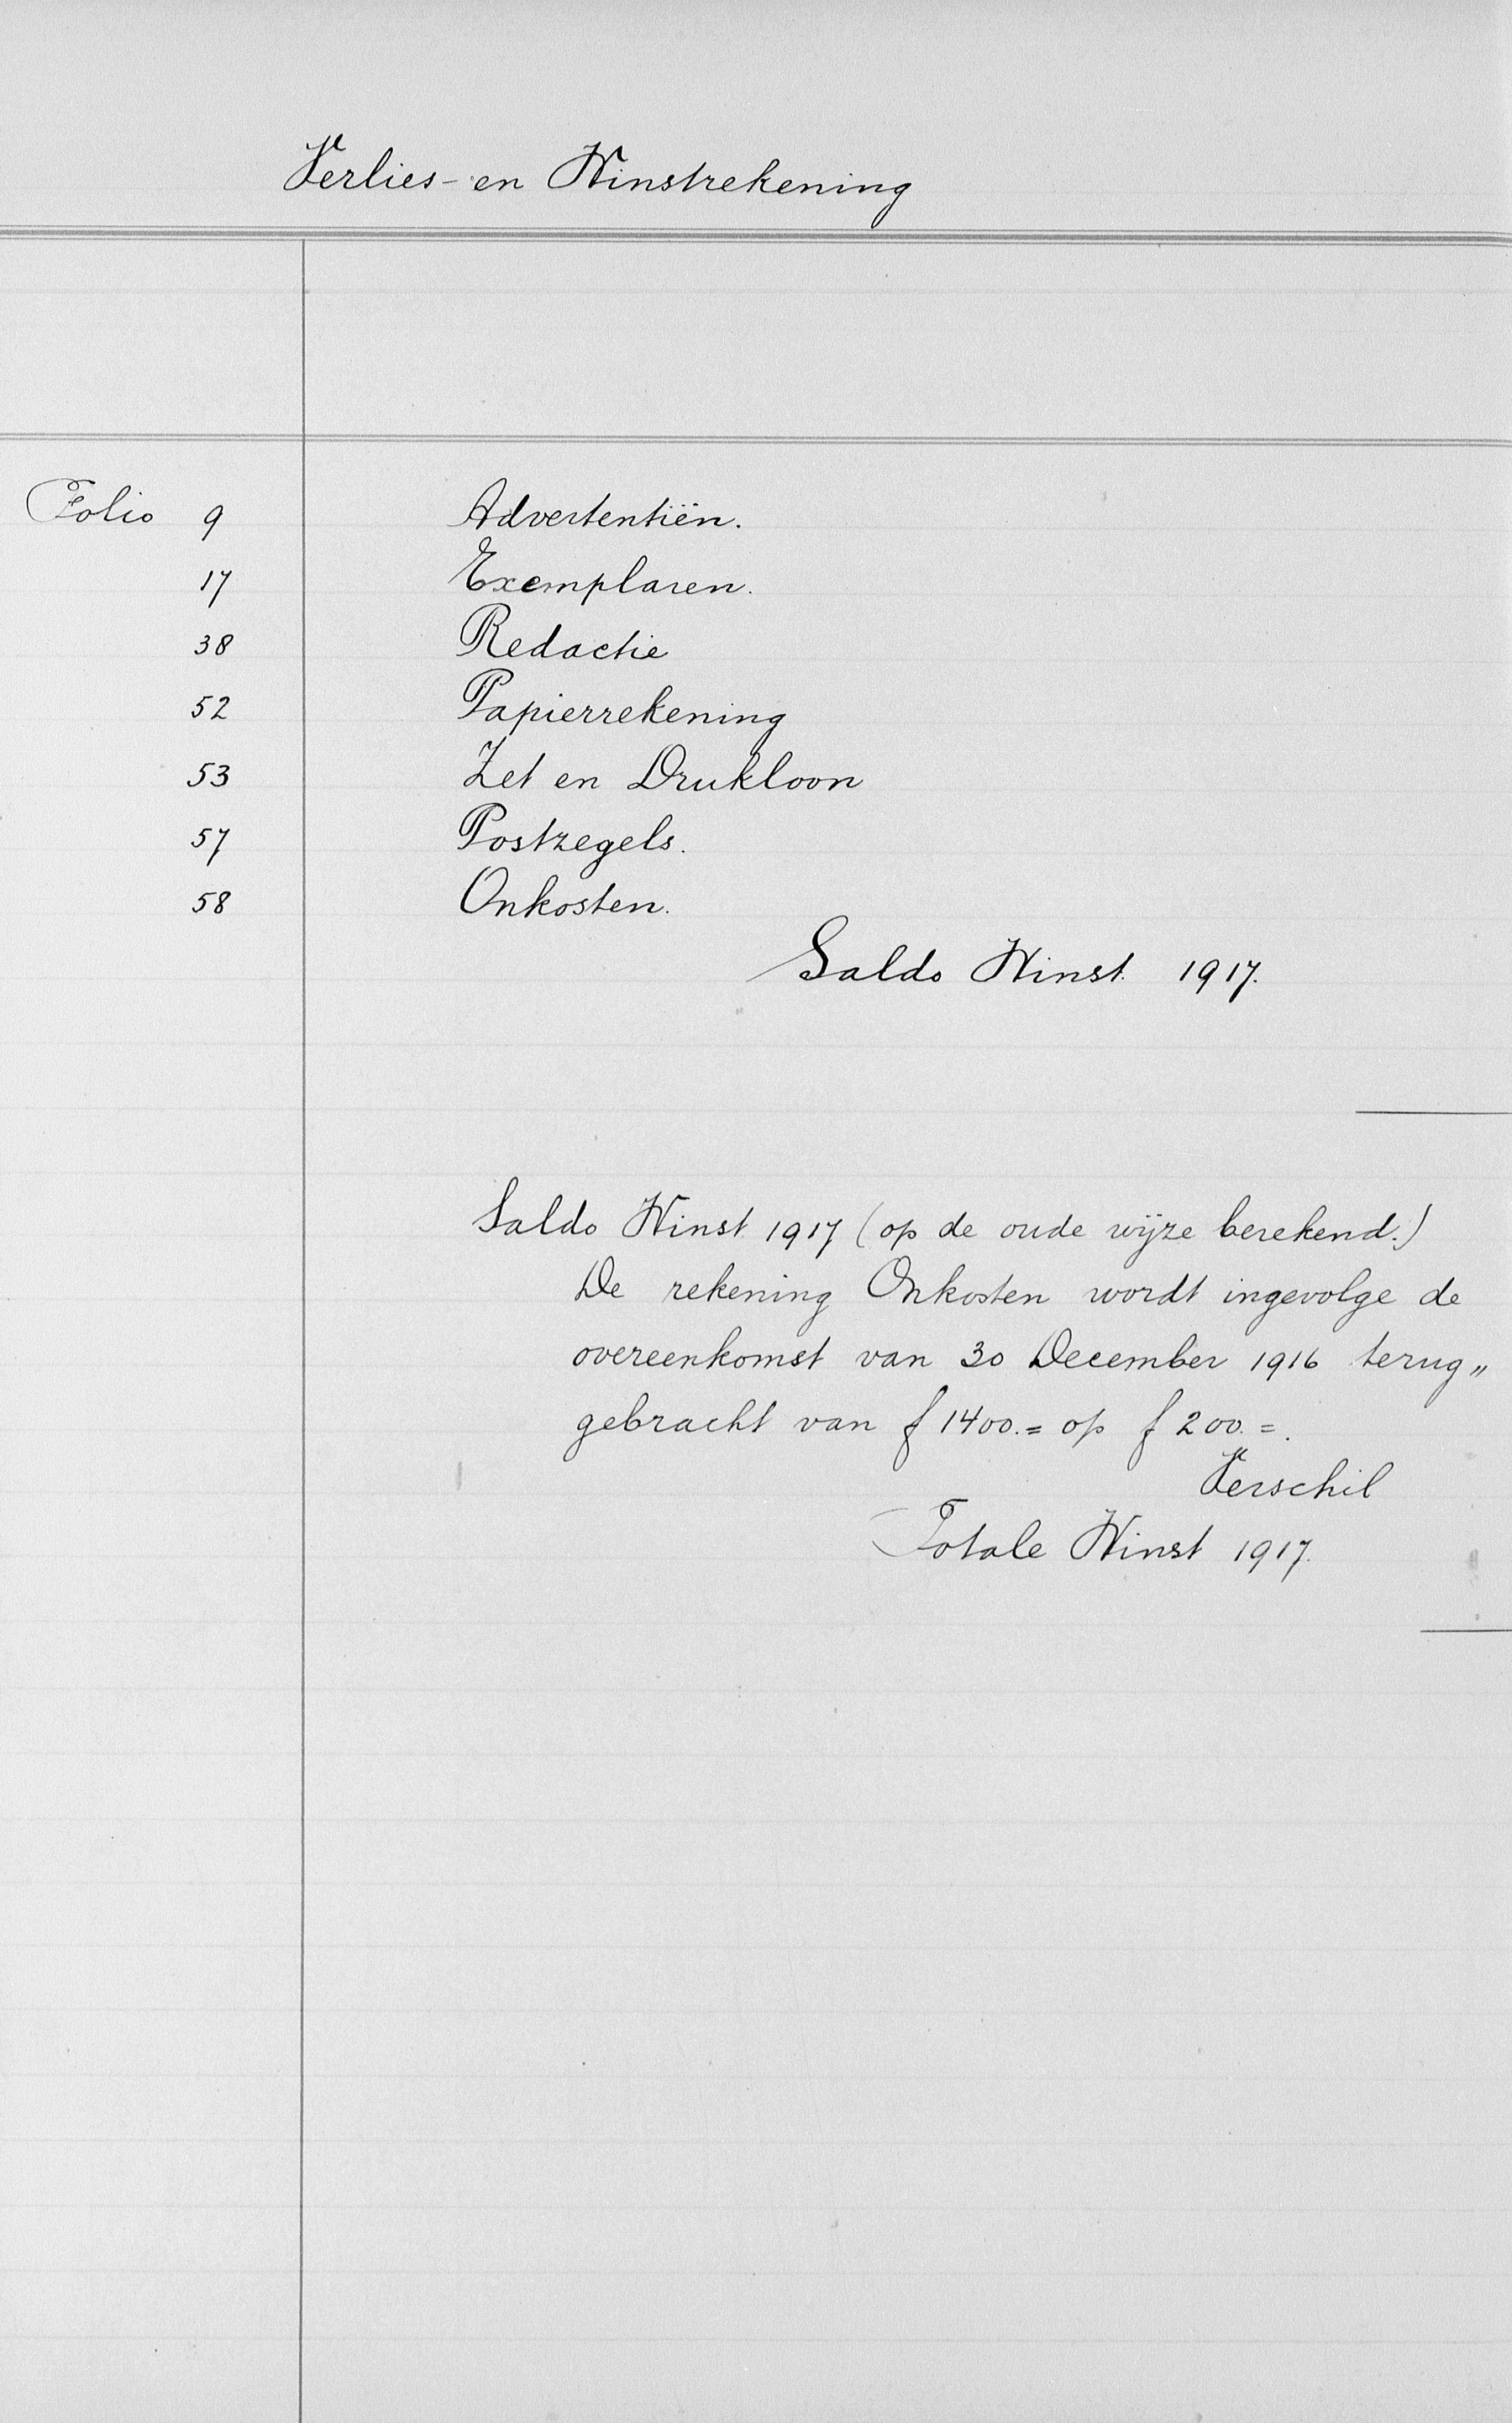 Verlies- en Winstrekening
Folio 9 Advertentiën.
17 Exemplaren.
38 Redactie
52 Papierrekening
53 Zet en Drukloon
57 Postzegels.
58 Onkosten.
Saldo Winst. 1917.
Saldo Winst 1917 (op de oude wijze berekend.)
De rekening Onkosten wordt ingevolge de
overeenkomst van 30 December 1916 terug„
gebracht van f 1400.= op f 200.=.
Verschil
Totale Winst 1917.